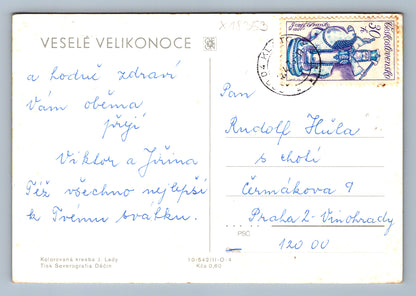 X11353
VESELÉ VELIKONOCE
a hodně zdraví
Vám oběma
přejí
Viktor a Jiřina
Též všechno nejlepší
k Tvému svátku.
Kolorovaná kresba J. Lady
Tisk Severografia Děčín
10/642/11/O-4
Kčs 0,60
30 h
Československo
Pan
Rudolf Hůla
s chotí
Čermákova 9
Praha 2-Vinohrady
PSČ
120 00